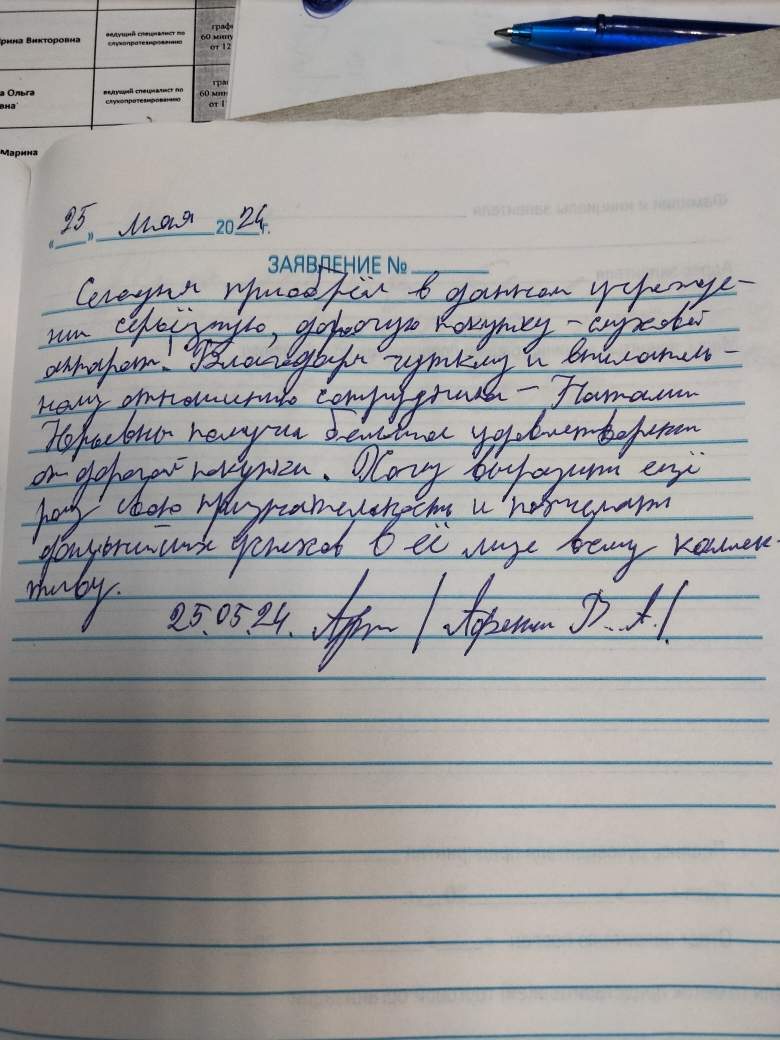 рина Викторовна
ведущий специалист по
слухопротезированию
60 мину
от 12
а Ольга
вна
ведущий специалист по
слухопротезированию
60 мин
Марина
"25" мая 2024г.
ЗАЯВЛЕНИЕ №
Сегодня приобрёл в данном учрежде-
нии серьёзную, дорогую покупку – слуховой
аппарат! Благодаря чуткому и вниматель-
ному отношению сотрудника – Наталии
Юрьевны получил большое удовлетворение
от дорогой покупки. Хочу выразить ещё
раз свою признательность и пожелать
дальнейших успехов в её лице всему коллек-
тиву.
25.05.24. В. А./